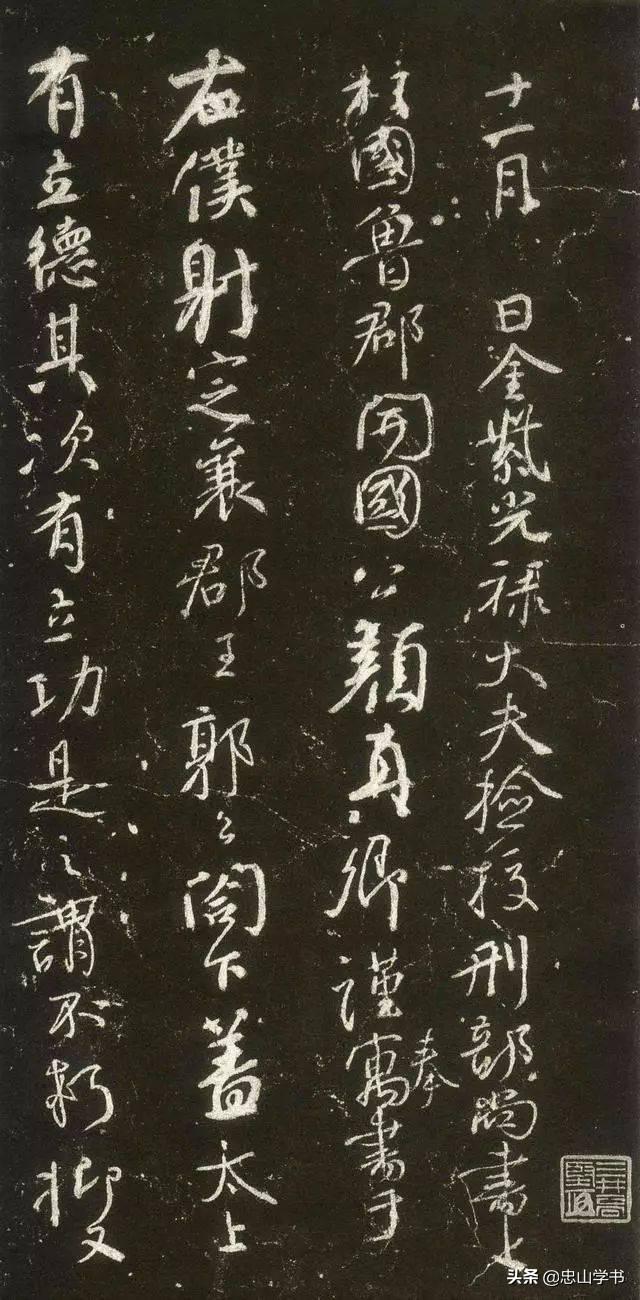 十一月 日金紫光祿大夫檢校刑部尚書上
柱國魯郡開國公顏真卿謹奉寓書于
右僕射定襄郡王郭公閤下蓋太上
有立德其次有立功是之謂不朽抑又
头条 @忠山学书